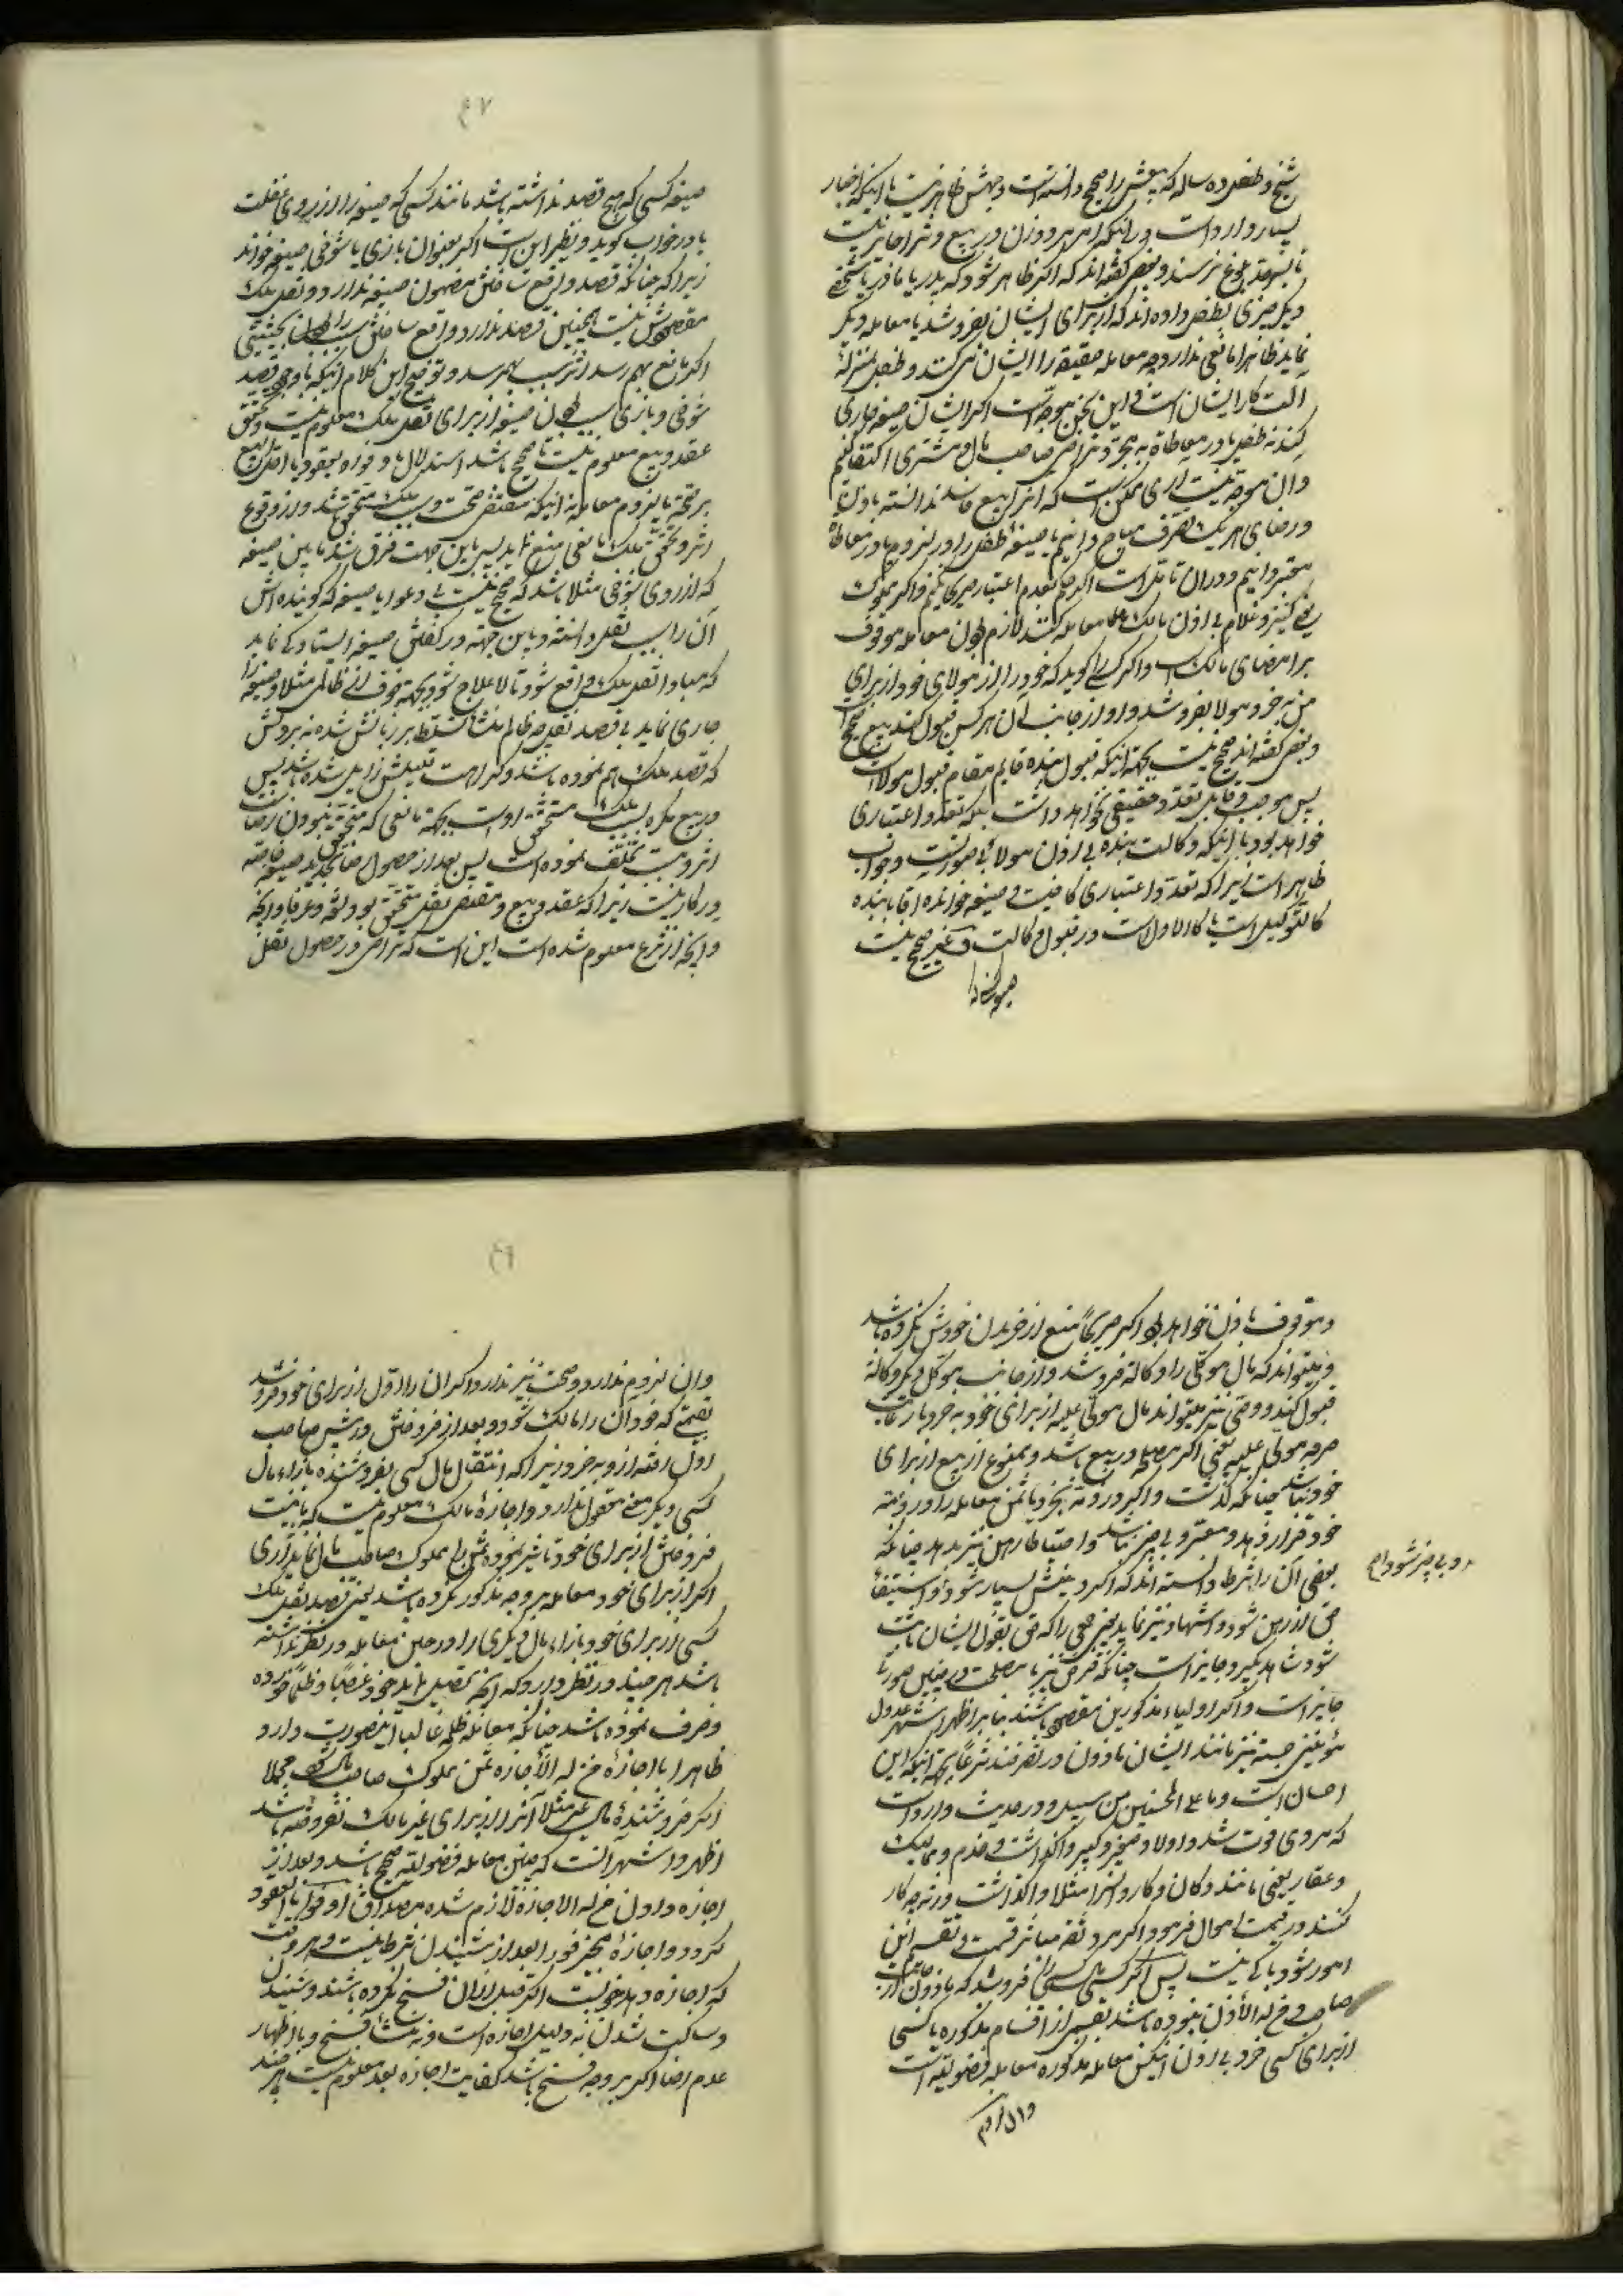 شیخ و طفل ده ساله که بیعش را صحیح دانسته است وجهش ظاهر نیست با اینکه اخبار
بسیار وارد است در اینکه امر هر دو زن در بیع و شرا جایز نیست
تا بسرحد بلوغ نرسند و بعضی گفته‌اند که اگر ظاهر شود که پدر یا مادر یا شخصی
دیگر چیزی بطفل داده‌اند که از برای ایشان بفروشد یا معامله دیگر
نماید ظاهرا مانعی ندارد چه معامله حقیقة را ایشان می‌کنند و طفل بمنزلهٔ
آلت کار ایشان است و این سخن موجه است اگر ایشان صیغه جاری
کنند نه طفل یا در معاطاة به مجرد تراضی صاحب مال و مشتری اکتفا کنیم
و آن موجه نیست آری ممکن است که اثر آن بیع فاسد ندانسته باذن
و رضای هر یک تصرف مباح دانیم یا صیغهٔ طفل را در لزوم یا در معاطاة
معتبر دانیم و در آن تأمل است اگر حکم بعدم اعتبار صریح کنیم و اگر مملوک
یعنی کنیز و غلام بی اذن مالک معامله کنند لازم نبود آن معامله موقوف
بر امضای مالک است و اگر کسی گوید که خود را از مولای خود از برای
من بخر و مولا بفروشد و او از جانب آن هر کس قبول کند بیع صحیح است
و بعضی گفته‌اند صحیح نیست بجهة اینکه قبول بنده قایم مقام قبول مولا است
پس موجب و قابل تعدد حقیقی نخواهد داشت بلکه تعدد اعتباری
خواهد بود با اینکه وکالت بنده بی اذن مولا بی صورتست و جواب
ظاهر است زیرا که تعدد اعتباری کافیست و صیغه خواندن آقا با بنده
کالتوکیل است یا کالاول است در قبول وکالت و غیر صحیح نیست
۴۷
صیغه کسی که هیچ قصد نداشته باشد مانند کسی که صیغه را از روی غفلت
یا در خواب گوید و نظیر این است اگر بعنوان بازی یا شوخی صیغه خواند
زیرا که چنانکه قصد واقع ساختن مضمون صیغه ندارد و نقل ملک
مقصودش نیست همچنین قصد ندارد واقع ساختن سبب را بحیثیتی
اگر مانع بهم رسد اثر سبب بهم رسد و توضیح این کلام اینکه با وجود قصد
شوخی و بازی سبب بودن صیغه از برای نقل ملک معلوم نیست و تحقق
عقد و بیع معلوم نیست تا صحیح باشد استدلال باوفوا بالعقود یا احل الله البیع
بر صحة یا لزوم معامله نه اینکه مقتضی صحت و سبب ملک متحقق باشد و از وقوع
اثر و تحقق ملک مانعی منع نماید پس باین جهت فرق شد ما بین صیغه
که از روی شوخی مثلا باشد که صحیح نیست و دعوا با صیغه که گوینده‌اش
آن را سبب نقل دانسته و باین جهة در گفتن صیغه ایستادگی نماید
که مبادا نقل ملک واقع شود تا لاعلاج شود و بجهة خوف از ظالمی مثلا صیغه را
جاری نماید بی قصد نقل چه ظالم
که قصد ملک هم نموده باشد و کراهت قلبیش زایل شده باشد پس
در بیع مکره سبب ملک متحقق است بجهة مانعی که متحقق نبودن رضا است
اثر و سبب تخلف نموده است پس بعد از حصول رضا تجدید صیغه خاصه
در کار نیست زیرا که عقد و بیع و مقتضی نقل متحقق بود لغة و عرفا و آنچه
و آنچه از شرع معلوم شده است این است که تراضی در حصول نقل
و موقوف باذن خواهد بود اگر صریحا منع از خریدن خودش نکرده باشد
و میتواند که مال موکلی را وکالة فروشد و از جانب موکل دیگر وکالة
قبول کند و وصی نیز میتواند مال مولی علیه از برای خود بخرد با رعایت
صرفه مولی علیه یعنی اگر مصلحة در بیع باشد و ممنوع از بیع از برای
خود نباشد چنانکه گذشت و اگر در ذمه بخرد یا ثمن معامله را در ذمه
خود قرار دهد و معسر و بی چیز نباشد و احتیاطا رهن نیز بدهد چنانکه
بعضی آن را شرط دانسته‌اند که اگر دینش بسیار شود و بی چیز شود او استیفای
حق از رهن شود و اشهاد نیز نماید یعنی جمعی را که حق بقول ایشان ثابت
شود شاهد بگیرد جایز است چنانکه قرض نیز با مصلحت در چنین صورت
جایز است و اگر اولیاء مذکورین مفقود باشند بنا بر اظهر اشهر عدول
مؤمنین حسبة نیز مانند ایشان مأذون در تصرفند شرعا بجهة اینکه این
احسان است و ما علی المحسنین من سبیل و در حدیث وارد است
که مردی فوت شد و اولاد صغیر و کبیر واگذاشت و خدم و ممالیک
و عقار یعنی مانند دکان و کاروانسرا مثلا واگذاشت ورثه چه کار
کنند در قسمت اموال فرمود اگر مرد ثقه مباشر قسمت و تقسیم این
امور شود باکی نیست پس اگر کسی مال کسی را فروشد که مأذون از جانب
صاحب مال و من له الأذن نبوده باشد بقسمی از اقسام مذکوره یا کسی
از برای کسی خرد بی اذن آنکس معامله مذکوره معامله فضولیه است
و آن لزوم
و بی چیز شود
و آن لزوم ندارد و صحت نیز ندارد اگر آن را اول از برای خود فروشد
بقصدی که خود آن را مالک شود و بعد از فروختن در پیش صاحب
اول رفته از و بخرد زیرا که انتقال مال کسی بفروشنده بازاء مال
کسی دیگر معنی معقول ندارد و اجازهٔ مالک معلوم نیست که با نیت
فروختن از برای خود تأثیر نموده ثمن را مملوک صاحب مال نماید آری
اگر از برای خود معامله بر وجه مذکور نکرده باشد یعنی قصد نقل ملک
کسی از برای خود بازاء مال دیگری را در حین معامله در نظر نداشته
باشد هر چند در نظر دارد که آنچه تحصیل نماید خود غصبا و ظلما خورده
و صرف نموده باشد چنانکه معامله ظلمه غالبا اینصورت دارد
ظاهرا با اجازهٔ من له الأجازه ثمن مملوک صاحب مال شود مجملا
اگر فروشندهٔ مال غیر مثلا آنرا از برای غیر مالک نفروخته باشد
اظهر و اشهر آنست که چنین معامله فضولیه صحیح باشد و بعد از
اجازه دادن من له الاجازه لازم شده مصداق اوفوا بالعقود
گردد و اجازهٔ مجیز فورا بعد از شنیدن شرط نیست و هر وقت
که اجازه دهد خوبست اگر قبل از آن فسخ نکرده باشند و شنیدن
و ساکت شدن نه دلیل اجازه است و نه منشأ فسخ و با اظهار
عدم رضا اگر بر وجه فسخ باشد کفایت اجازه بعد معلوم نیست هر چند